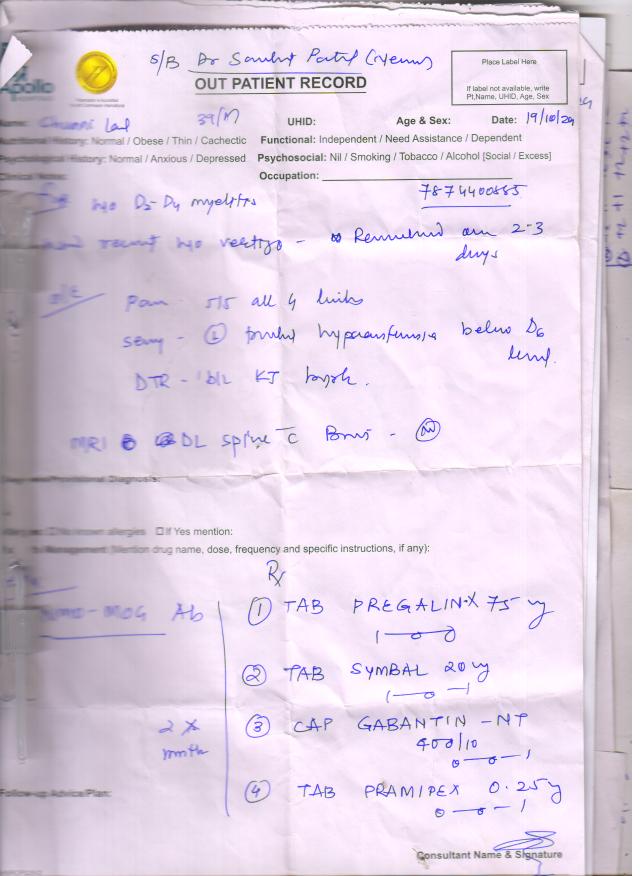 S/B Dr Patel
OUT PATIENT RECORD
Place Label Here
If label not available, write
Pt,Name, UHID, Age, Sex
Apollo
Lal 39/M UHID: Age & Sex: Date: 19/10/24
History: Normal / Obese / Thin / Cachectic Functional: Independent / Need Assistance / Dependent
History: Normal / Anxious / Depressed Psychosocial: Nil / Smoking / Tobacco / Alcohol [Social / Excess]
Clinical Notes: Occupation:
7874400885
h/o D2-D4 myelitis
recent h/o vertigo - 2-3
days
o/e
Power 5/5 all 4 limbs
below D6
level
DTR - b/L KJ brisk.
MRI DL spine c̄ - N
Diagnosis:
No known allergies If Yes mention:
Management (Mention drug name, dose, frequency and specific instructions, if any):
Rx
NMO-MOG Ab
① TAB PREGALIN-X 75 mg
1-0-0
② TAB SYMBAL 20 mg
1-0-1
2 x
month
③ CAP GABANTIN-NT
400/10
0-0-1
④ TAB PRAMIPEX 0.25 mg
0-0-1
Follow-up Advice/Plan:
Consultant Name & Signature